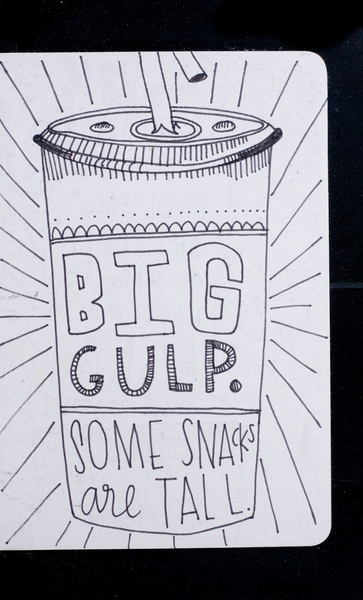 BIG
GULP.
SOME SNACKS
are TALL.